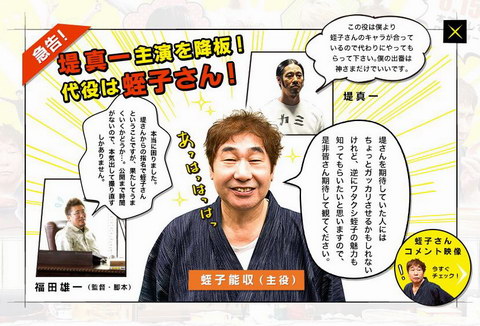 急告!
堤真一主演を降板!
代役は蛭子さん!
この役は僕より
蛭子さんのキャラが合って
いるので代わりにやっても
らって下さい。僕の出番は
神さまだけでいいです。
堤真一
本当に困りました。
堤さんからの指名で蛭子さん
ということですが、果たしてうま
くいくかどうか…。公開まで時間
がないので、本気出して撮り直す
しかありません。
福田雄一(監督・脚本)
あっはっはっはっ
堤さんを期待していた人には
ちょっとガッカリさせるかもしれない
けれど、逆にワタクシ蛭子の魅力も
知ってもらいたいと思いますので、
是非皆さん期待して観てください。
蛭子能収(主役)
蛭子さん
コメント映像
今すぐ
チェック!